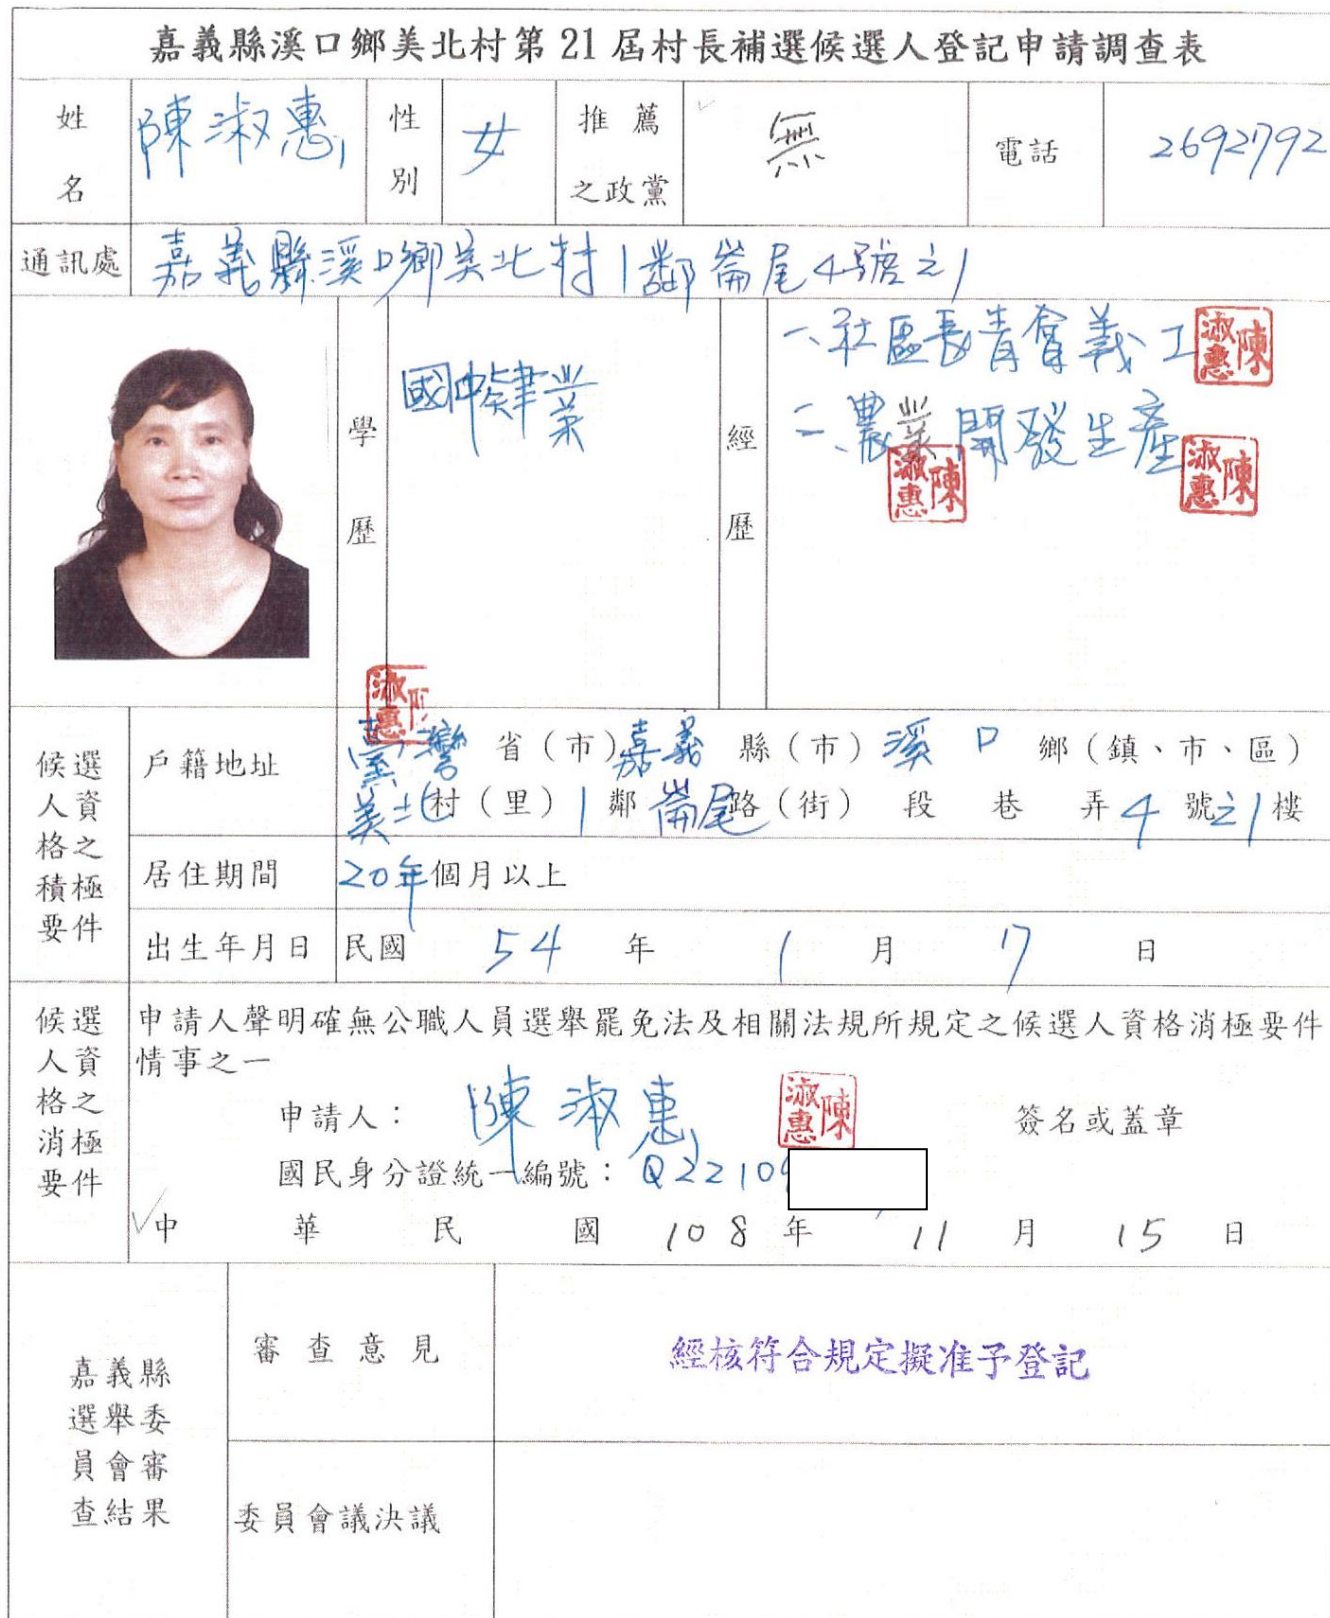 嘉義縣溪口鄉美北村第21屆村長補選候選人登記申請調查表
姓名 陳淑惠 性別 女 推薦之政黨 無 電話 2692792
通訊處 嘉義縣溪口鄉美北村1鄰崙尾4號之1
學歷 國中肄業
經歷 一、社區長青會義工 陳淑惠
二、農業開發生產 陳淑惠
陳淑惠
陳淑惠
候選人資格之積極要件
戶籍地址 臺灣省(市)嘉義縣(市)溪口鄉(鎮、市、區)
美北村(里)1鄰崙尾路(街)段巷弄4號之1樓
居住期間 20年個月以上
出生年月日 民國54年1月17日
候選人資格之消極要件
申請人聲明確無公職人員選舉罷免法及相關法規所規定之候選人資格消極要件
情事之一
申請人:陳淑惠 陳淑惠 簽名或蓋章
國民身分證統一編號:Q22109
中華民國108年11月15日
嘉義縣選舉委員會審查結果
審查意見 經核符合規定擬准予登記
委員會議決議